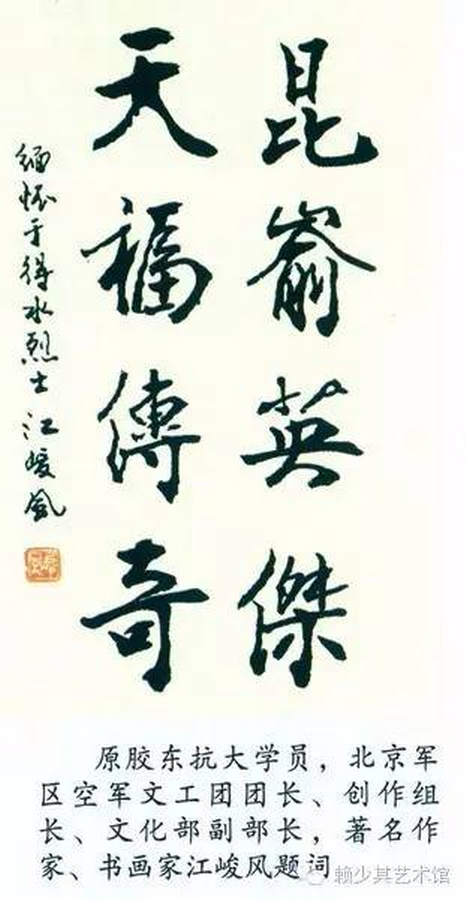 昆嵛英傑
天福傳奇
缅怀于得水烈士 江峻風
原胶东抗大学员，北京军
区空军文工团团长、创作组
长、文化部副部长，著名作
家、书画家江峻风题词
赖少其艺术馆